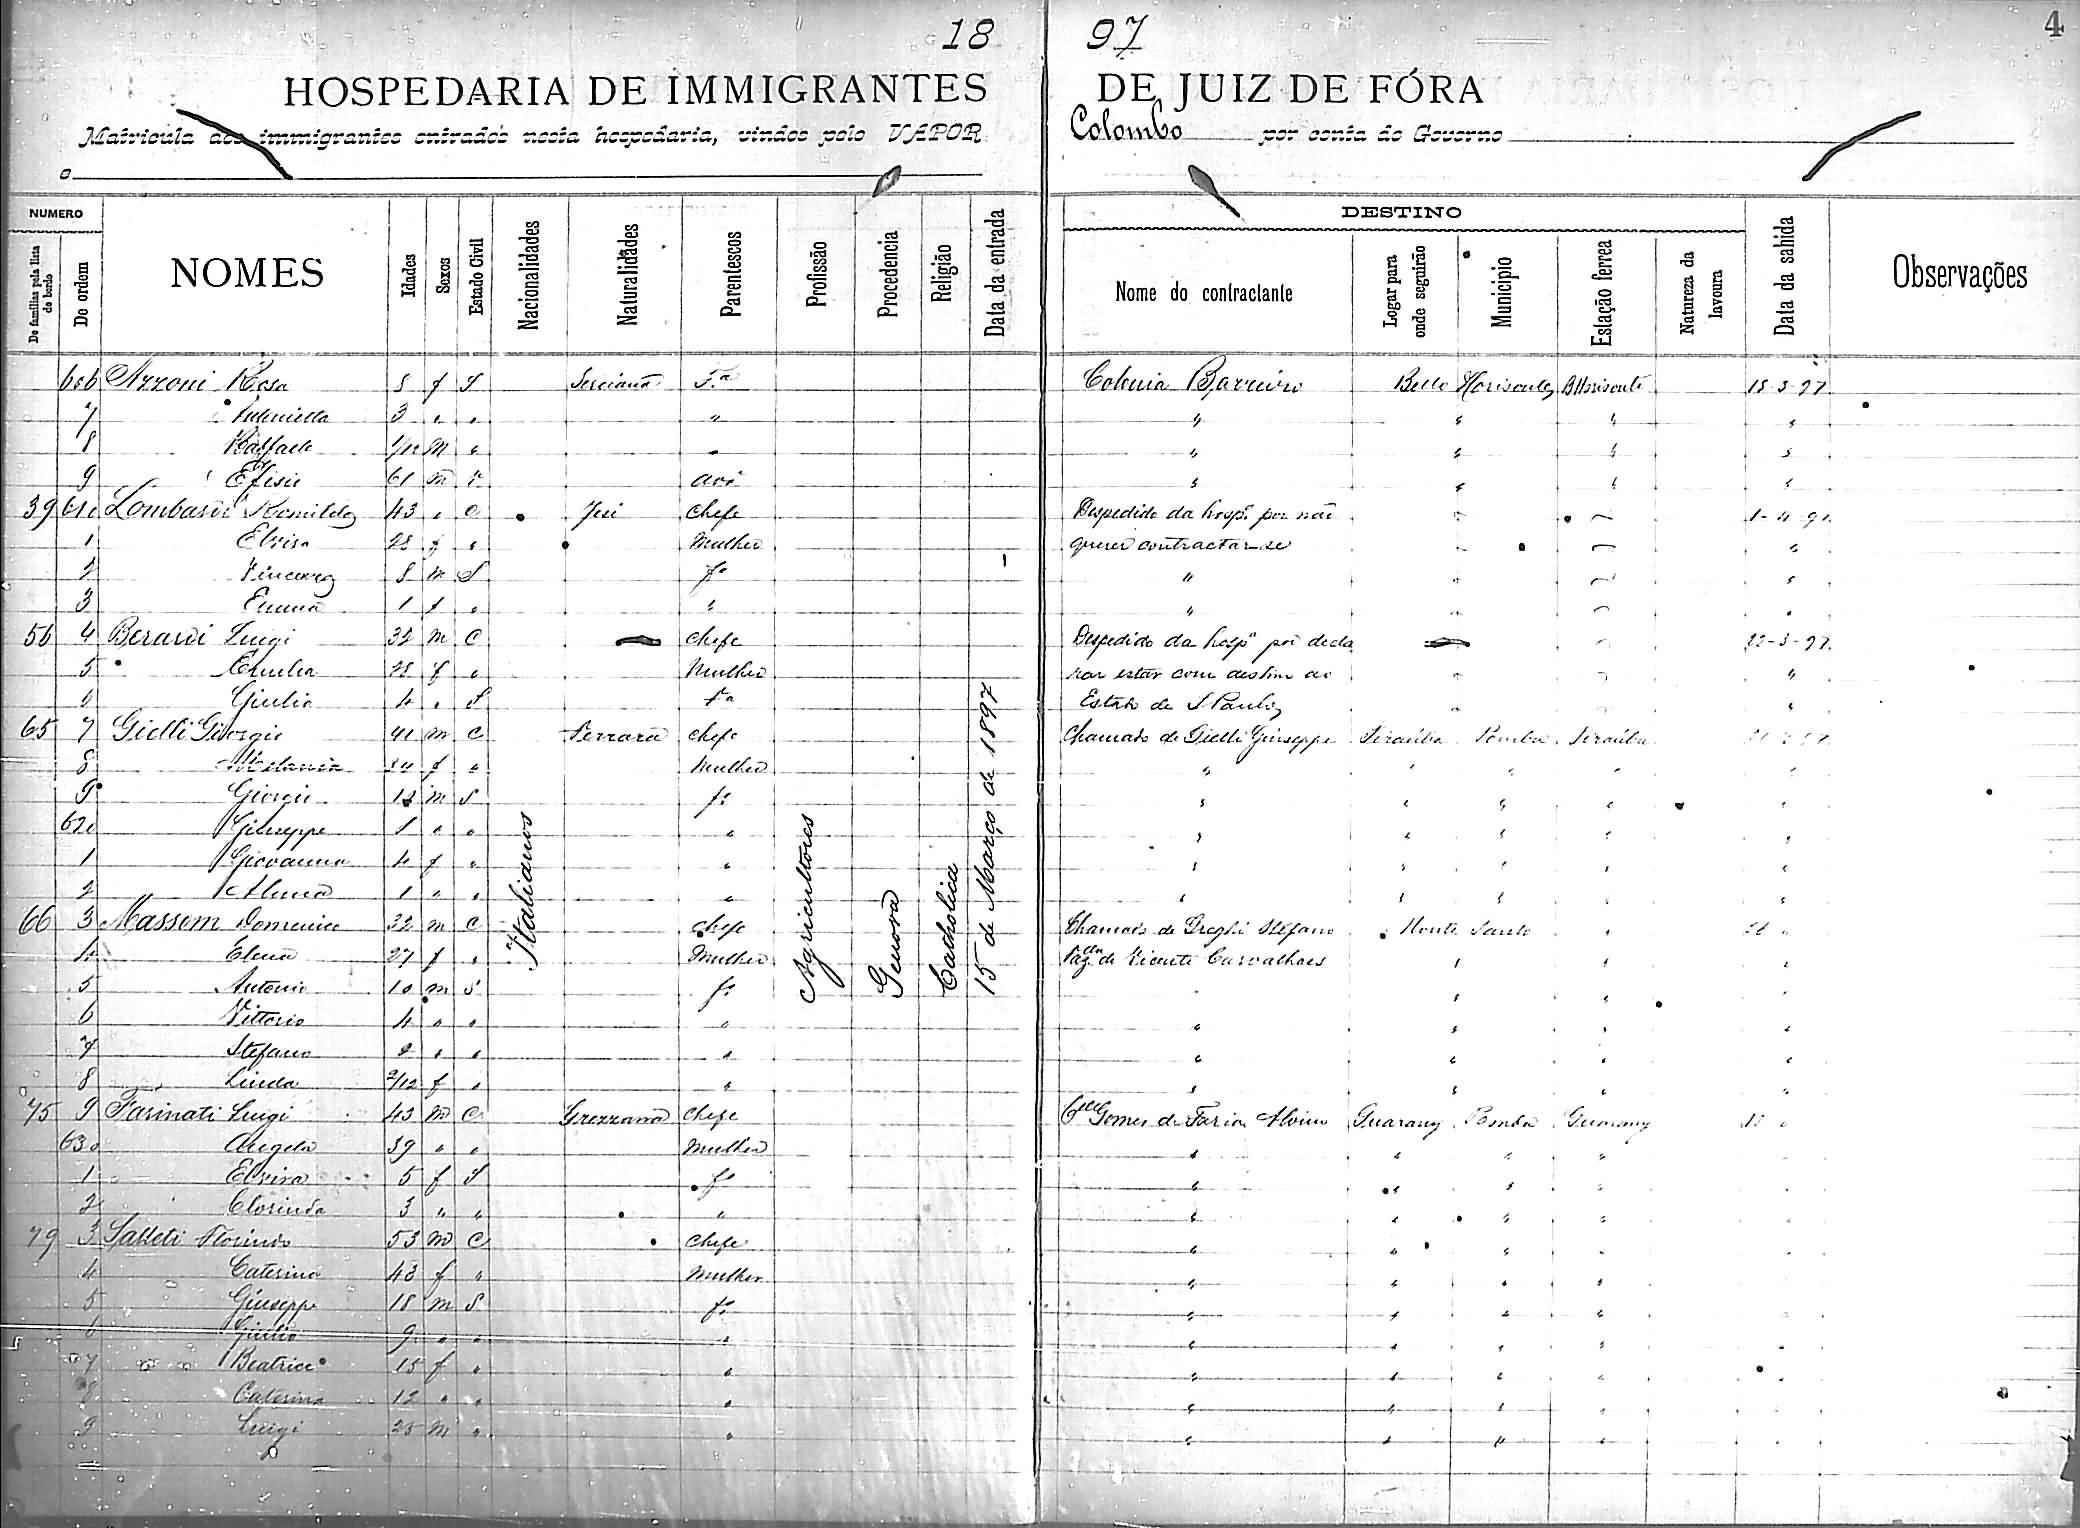 18 97
4
HOSPEDARIA DE IMMIGRANTES DE JUIZ DE FÓRA
Matricula dos immigrantes entrados nesta hospedaria, vindos pelo VAPOR Colombo por conta do Governo
e
NUMERO
De familias pela lista de bordo
De ordem
NOMES
Idades
Sexos
Estado Civil
Nacionalidades
Naturalidades
Parentescos
Profissão
Procedencia
Religião
Data da entrada
DESTINO
Nome do contractante
Logar para onde seguirão
Municipio
Estação ferrea
Natureza da lavoura
Data da sahida
Observações
Italianos
Agricultores
Genova
Catholica
15 de Março de 1897
606 Azzoni Rosa 8 f S fa Colonia Barreiro Bello Horisonte BHorisonte 18-3-97
7 Antonietta 3 " " " " " " "
8 Raffaele 1/12 m " " " " " "
9 Efisio 61 m v avô " " " "
39 610 Lombardi Romildo 43 " C Jesi chefe Despedido da hospa por não 1-4-97
1 Elvira 28 f " Mulher querer contractar-se "
2 Vincenzo 8 m S fo " "
3 Emma 1 f " " " "
56 4 Berardi Luigi 32 m C chefe Despedido da hospa por decla 22-3-97
5 Emilia 28 f " Mulher rar estar com destino ao "
6 Giulia 4 " S fa Estado de S Paulo "
65 7 Gielli Giorgio 41 m C Ferrara chefe Chamado de Gielli Giuseppe Piraúba Pomba Piraúba
8 34 f " Mulher " " " " "
9 Giorgio 12 m S fo " " " " "
620 Giuseppe 8 " " " " " " " "
1 Giovanna 4 f " " " " " " "
2 1 " " " " " " " "
66 3 Massom Domenico 32 m C chefe Chamado de Greghi Stefano Monte Santo " "
4 Elena 27 f " Mulher Fazda de Vicente Carvalhaes " " "
5 Antonio 10 m S fo " " " "
6 Vittorio 4 " " " " " " "
7 Stefano 2 " " " " " " "
8 Linda 2/12 f " " " " " "
75 9 Farinati Luigi 43 m C Grezzana chefe Cel Gomes de Faria Alvim Guarany Pomba Guarany "
630 Angela 39 " " Mulher " " " " "
1 Elvira 5 f S fa " " " " "
2 Clorinda 3 " " " " " " " "
79 3 Salleti Florindo 53 m C chefe " " " " "
4 Caterina 43 f " Mulher " " " " "
5 Giuseppe 18 m S fo " " " " "
6 Giulio 9 " " " " " " " "
7 Beatrice 15 f " " " " " " "
8 Caterina 12 " " " " " " " "
9 Luigi 25 m " " " " " " "